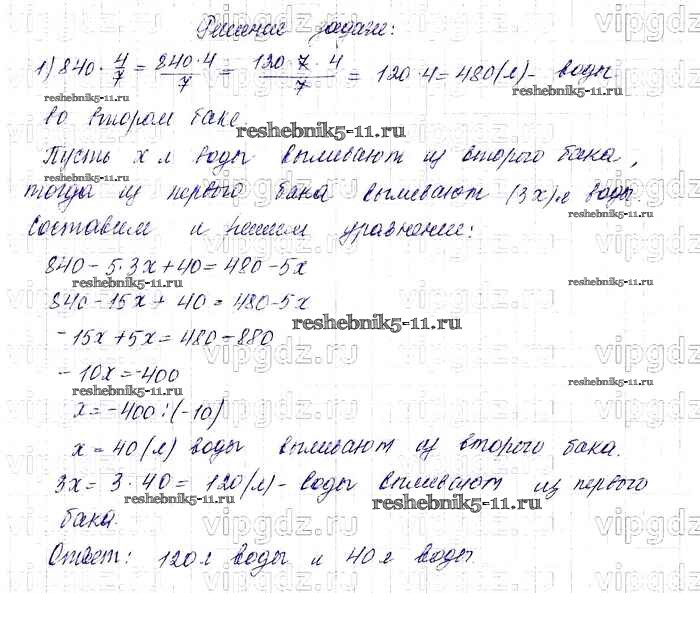 Решение задачи:
1) 840 · 4/7 = 840·4/7 = 120·7·4/7 = 120·4 = 480(л) - воды
во втором баке.
reshebnik5-11.ru
Пусть x л воды выливают из второго бака,
тогда из первого бака выливают (3x) л воды.
Составим и решим уравнение:
840 - 5·3x + 40 = 480 - 5x
840 - 15x + 40 = 480 - 5x
-15x + 5x = 480 - 880
-10x = -400
x = -400 : (-10)
x = 40(л) воды выливают из второго бака.
3x = 3·40 = 120(л) - воды выливают из первого
бака.
Ответ: 120 л воды и 40 л воды.
reshebnik5-11.ru
vipgdz.ru